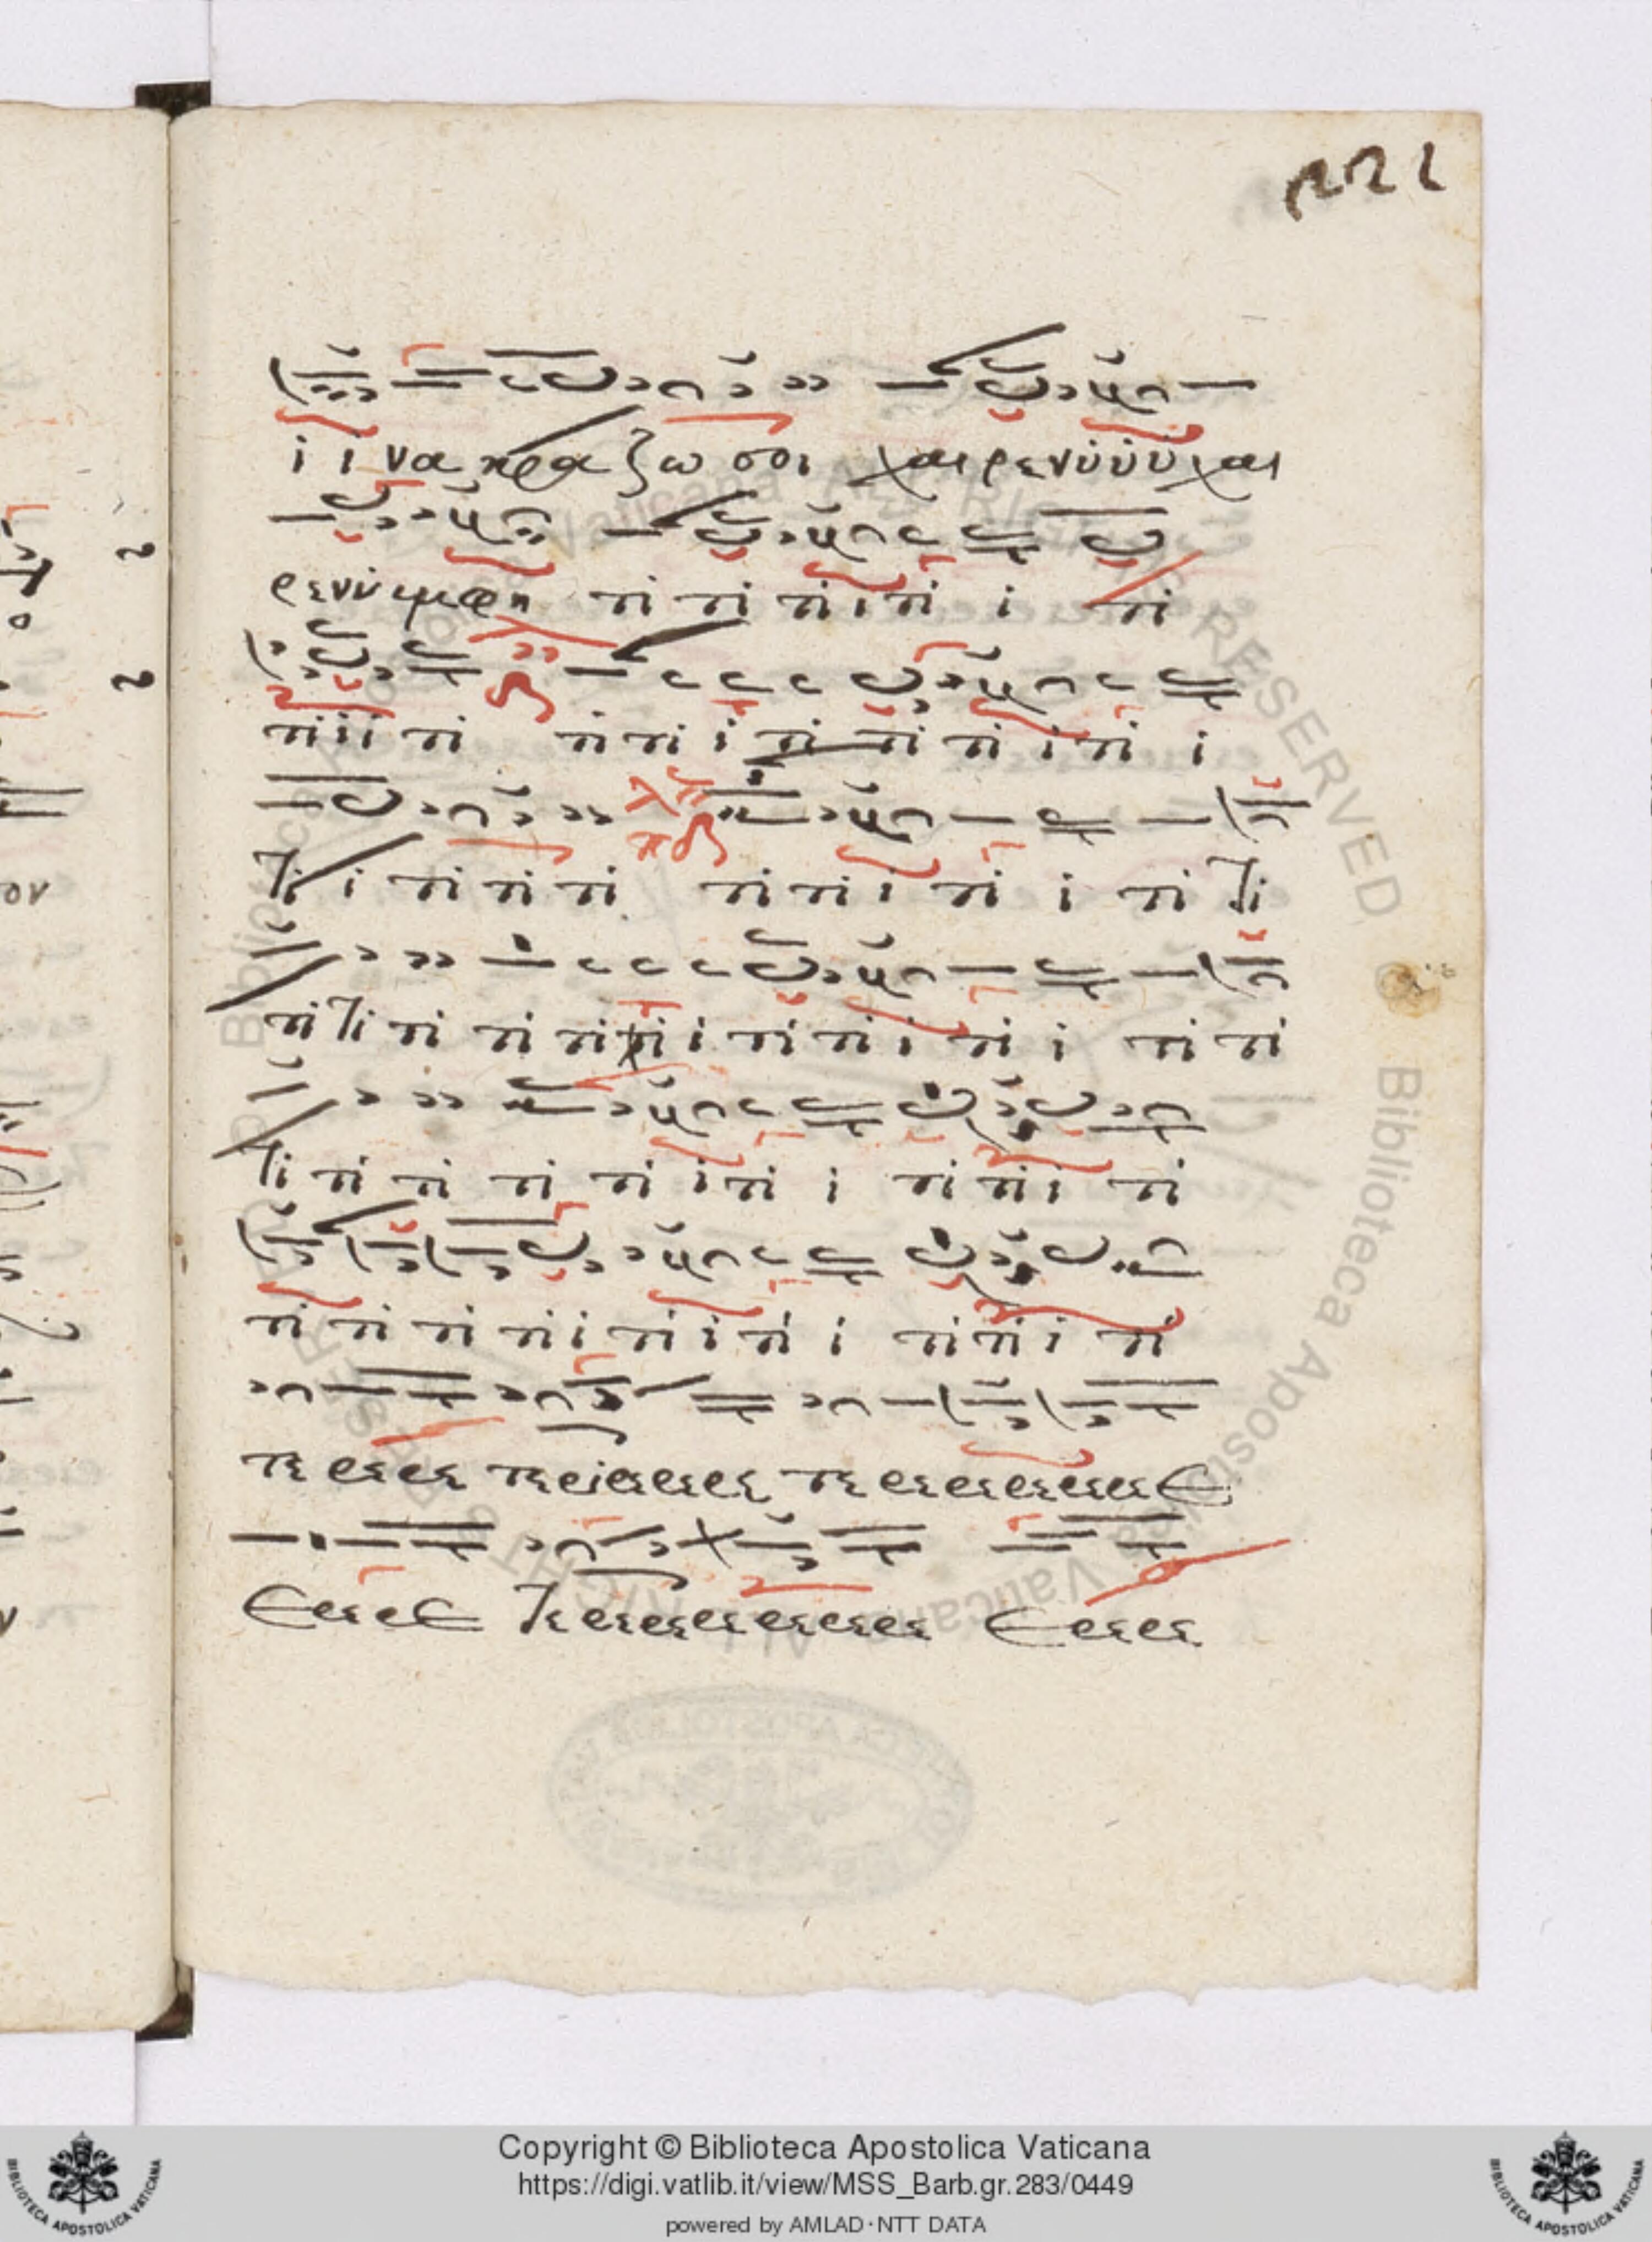 221
ι ι να κρα ζω σοι χαι ρε νυ υ υ χαι
ρε νυ υμ φη τι τι τι ι τι ι τι
τι ι ι τι τι τι ι τι τι τι ι τι ι
τι ι τι τι τι τι τι ι τι ι τι τι
τι τι τι τι τι τι ι τι τι ι τι ι τι τι
τι τι τι τι τι ι τι ι τι τι ι τι
τι τι τι τι ι τι ι τι ι τι τι ι τι
τε ε ε ε ε τε ε ε ε ε ε ε τε ε ε ε ε ε ε ε ε ε
ε ε ε ε ε τε ε ε ε ε ε ε ε ε ε ε ε ε ε ε ε ε ε
Copyright © Biblioteca Apostolica Vaticana
https://digi.vatlib.it/view/MSS_Barb.gr.283/0449
powered by AMLAD·NTT DATA